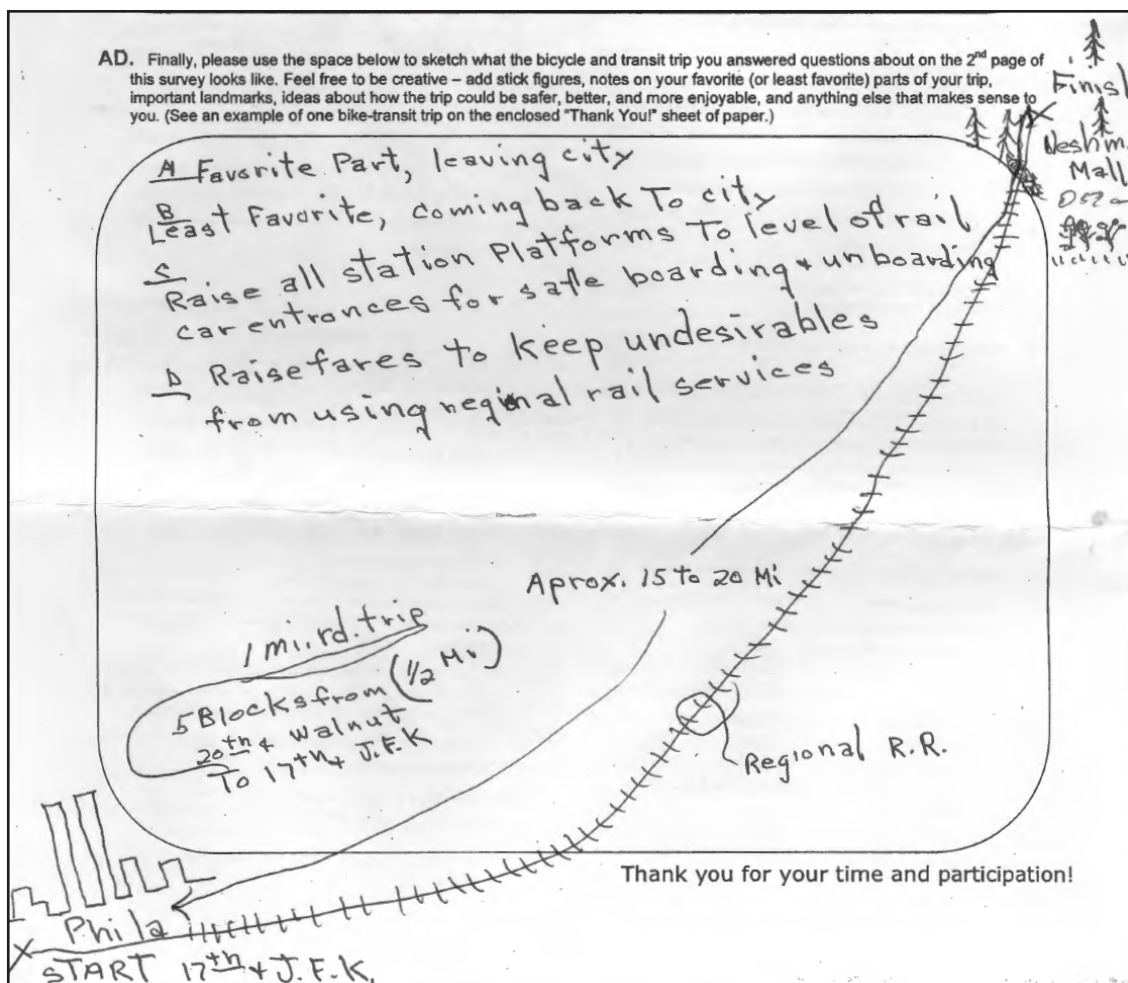 AD. Finally, please use the space below to sketch what the bicycle and transit trip you answered questions about on the 2nd page of
this survey looks like. Feel free to be creative – add stick figures, notes on your favorite (or least favorite) parts of your trip,
important landmarks, ideas about how the trip could be safer, better, and more enjoyable, and anything else that makes sense to
you. (See an example of one bike-transit trip on the enclosed "Thank You!" sheet of paper.)
Finish
Neshm.
Mall
A Favorite Part, leaving city
B
Least Favorite, coming back To city
C
Raise all station Platforms To level of rail
car entrances for safe boarding + unboarding
D Raise fares to keep undesirables
from using regional rail services
Aprox. 15 to 20 Mi
1 mi. rd. trip
5 Blocks from (1/2 Mi)
20th + Walnut
To 17th + J.F.K
Regional R.R.
Thank you for your time and participation!
Phila
START 17th + J.F.K.